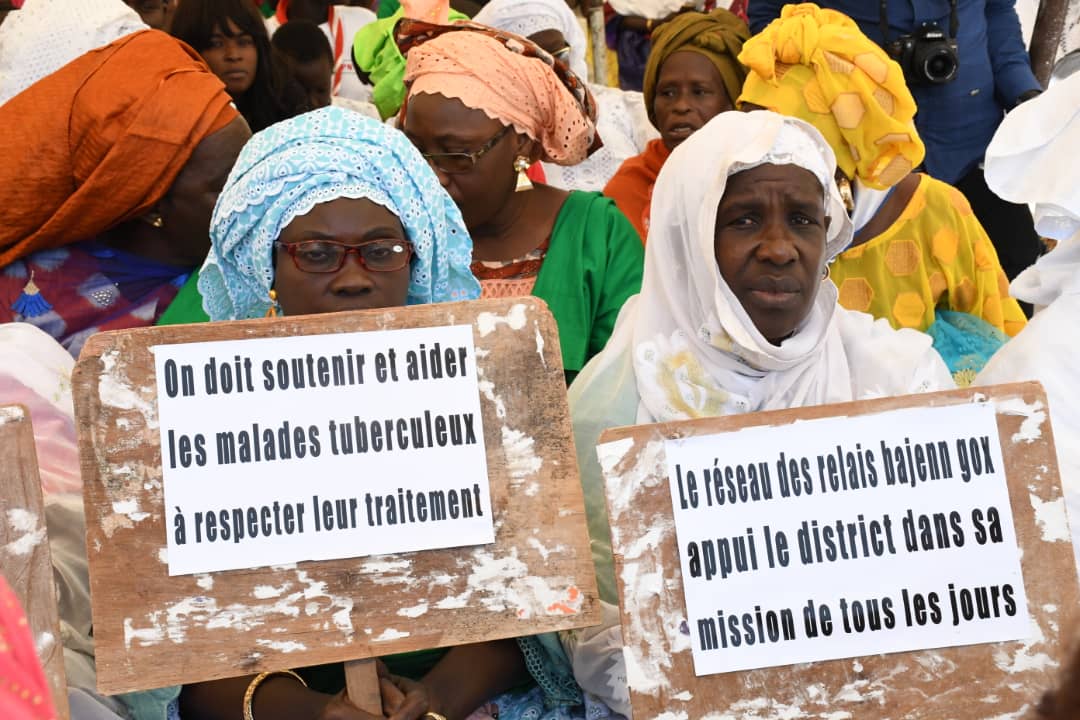 On doit soutenir et aider
les malades tuberculeux
à respecter leur traitement
Le réseau des relais bajenn gox
appui le district dans sa
mission de tous les jours
Nikon